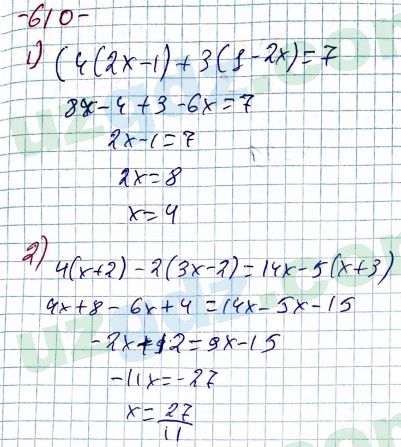 -610-
1) (4(2x-1)+3(1-2x)=7
8x-4+3-6x=7
2x-1=7
2x=8
x=4
2) 4(x+2)-2(3x-2)=14x-5(x+3)
4x+8-6x+4=14x-5x-15
-2x+12=9x-15
-11x=-27
x=27/11